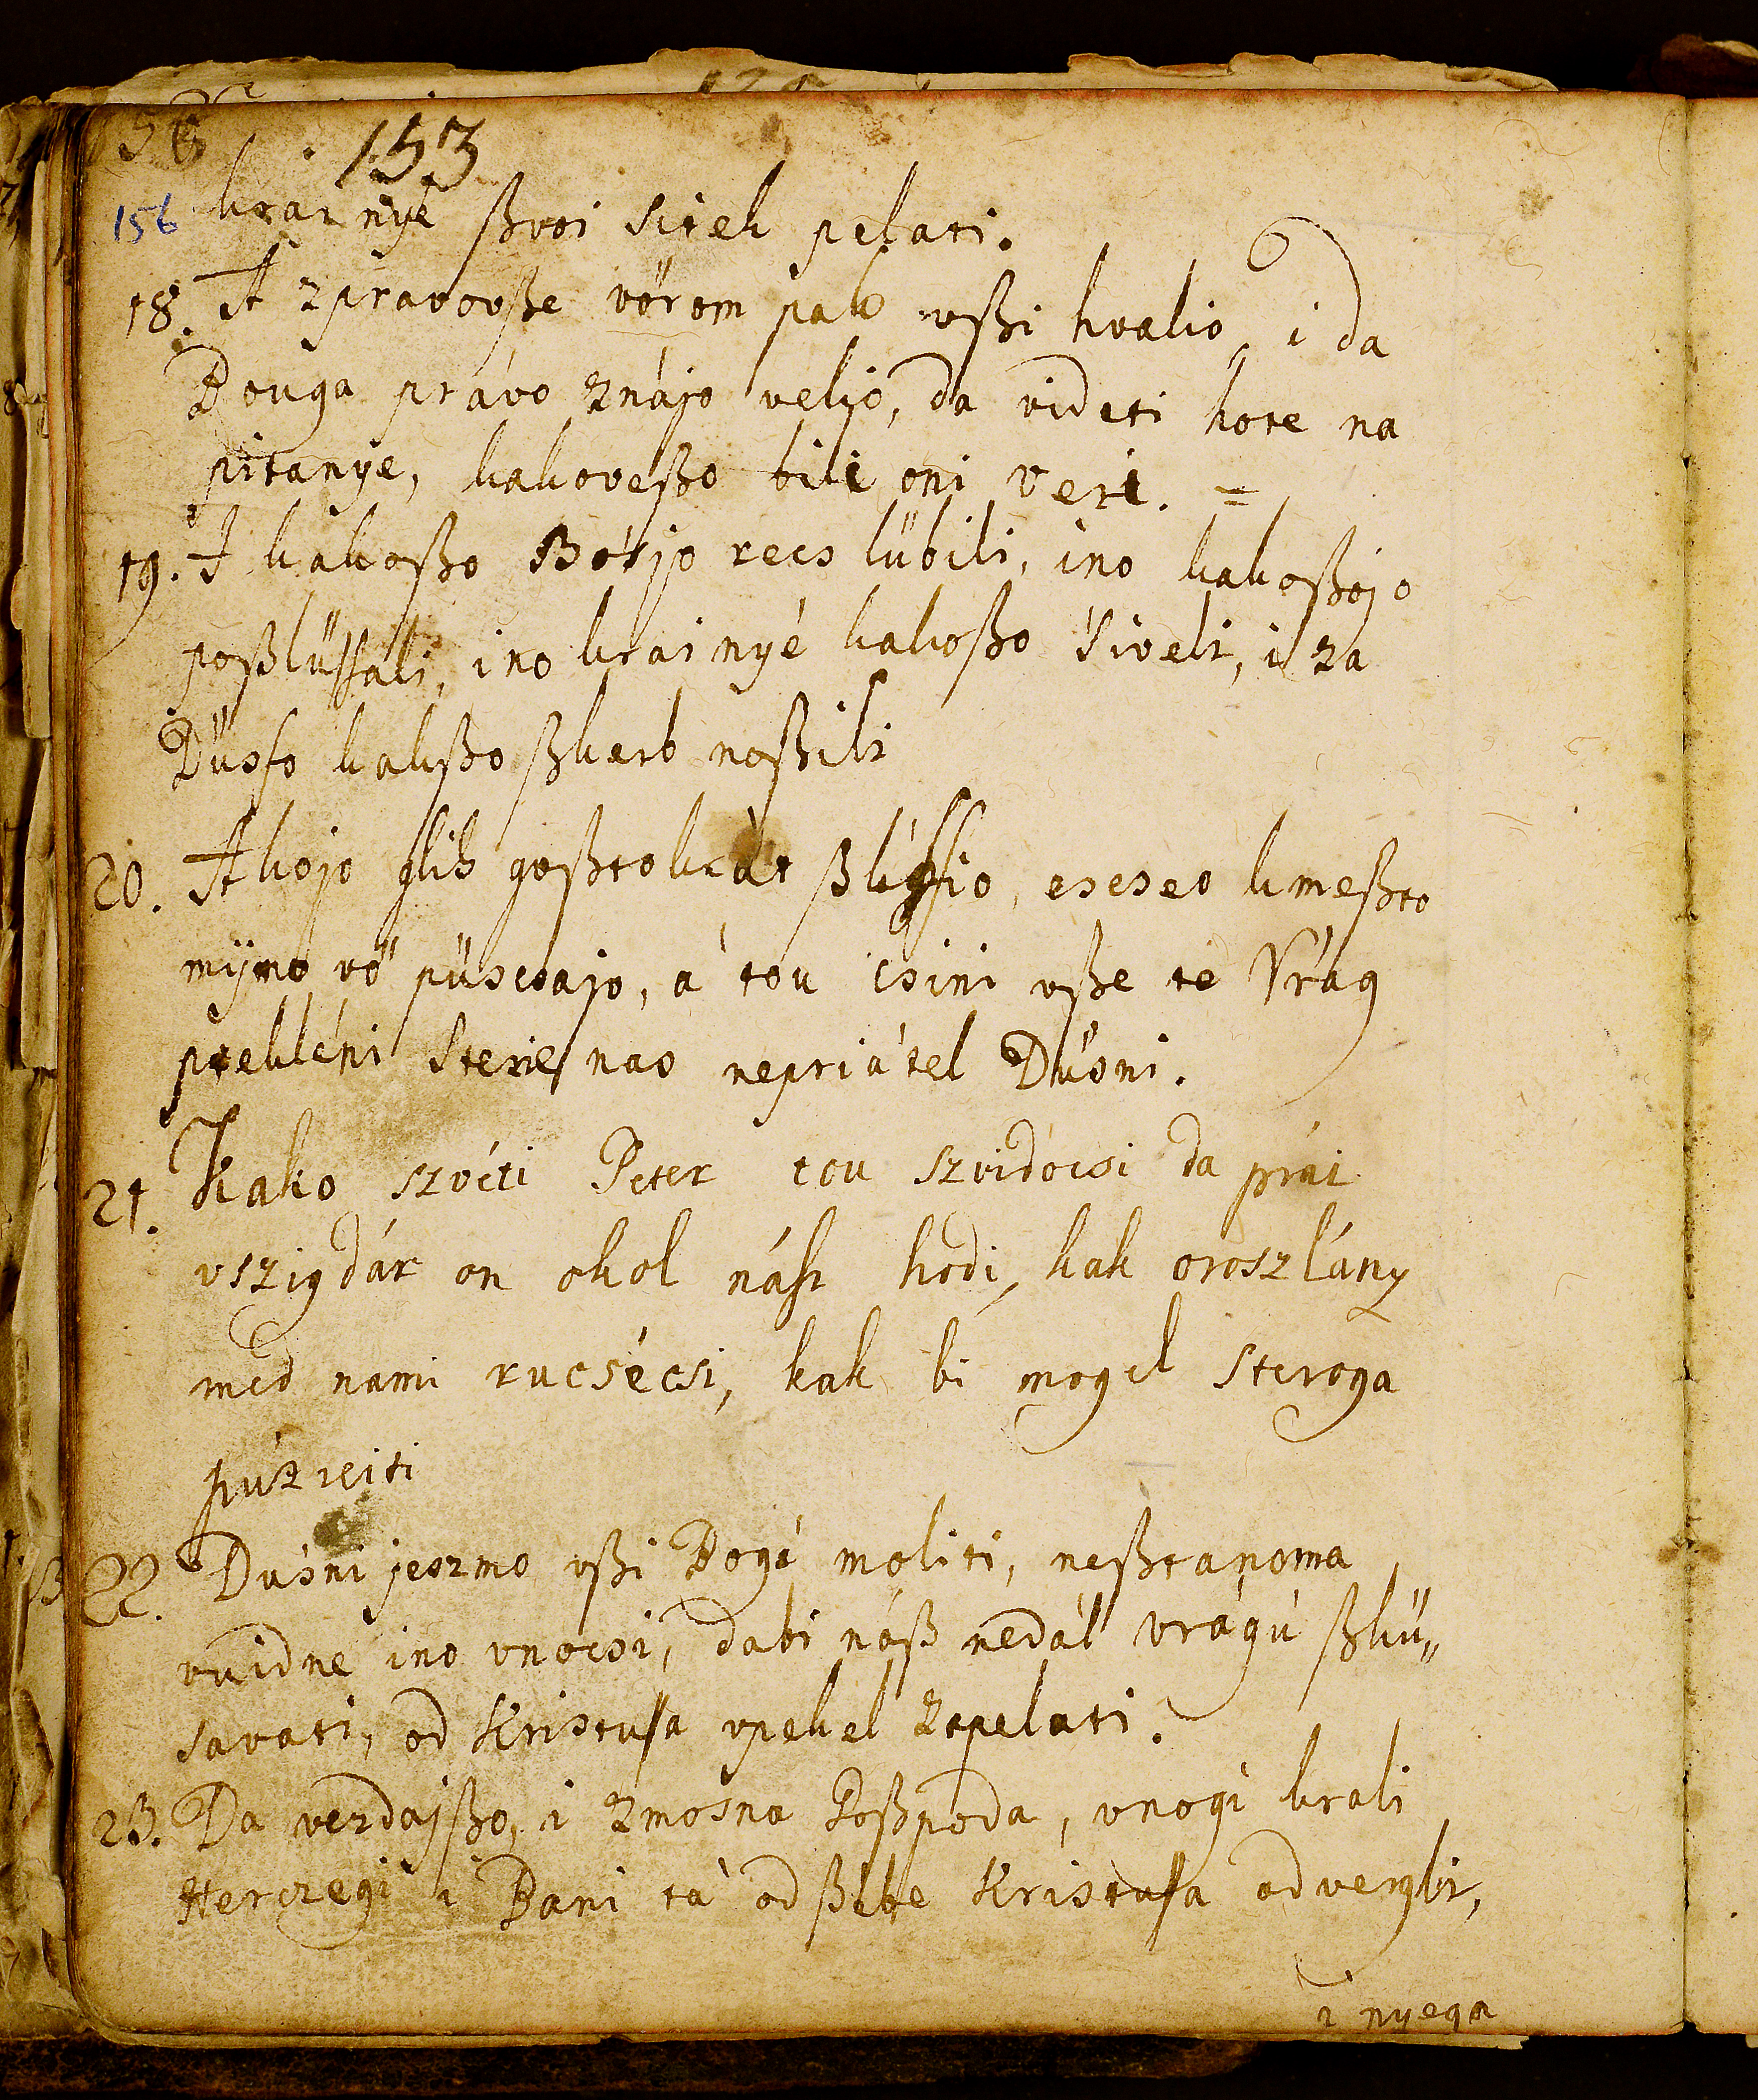 153
156 krainyé ßvoi sitek pelati.
18. A zpravovße vörom pak vßi hvalio, i da
Bouga právo znájo veljo, da videti hote na
pitanye, kakoveßo bili oni veri. =
19. I kakoßo Bósjo recs lübili, ino kakoßojo
poßlüssali, ino krainyé kakoßo siveli, i za
Düsso kakßo ßkerb noßili
20. A kojo glih goßtokrát ßlissio, escseo kmeßto
mijmo vö püscsajo, á tou csini vße té Vrág
pekléni sterie nas nepriátel Düsni.
21. Kako szvéti Peter tou szvidocsi da prái
vszigdár on okol náß hodi, kak oroszlány
med nami rucsécsi, kak bi mogel steroga
püzreiti
22. Dusni jeszmo vßi Bogá moliti, neßtanoma
vuidne ino vnocsi, dabi náß nedál vrágú ßkü„
savati, od Kristussa vpekel zepelati.
23. Da vezdajßo, i zmosna Goßpoda, vnogi krali
Herczegi i Bani tá od ßebe Kristussa odvergli,
i nyega